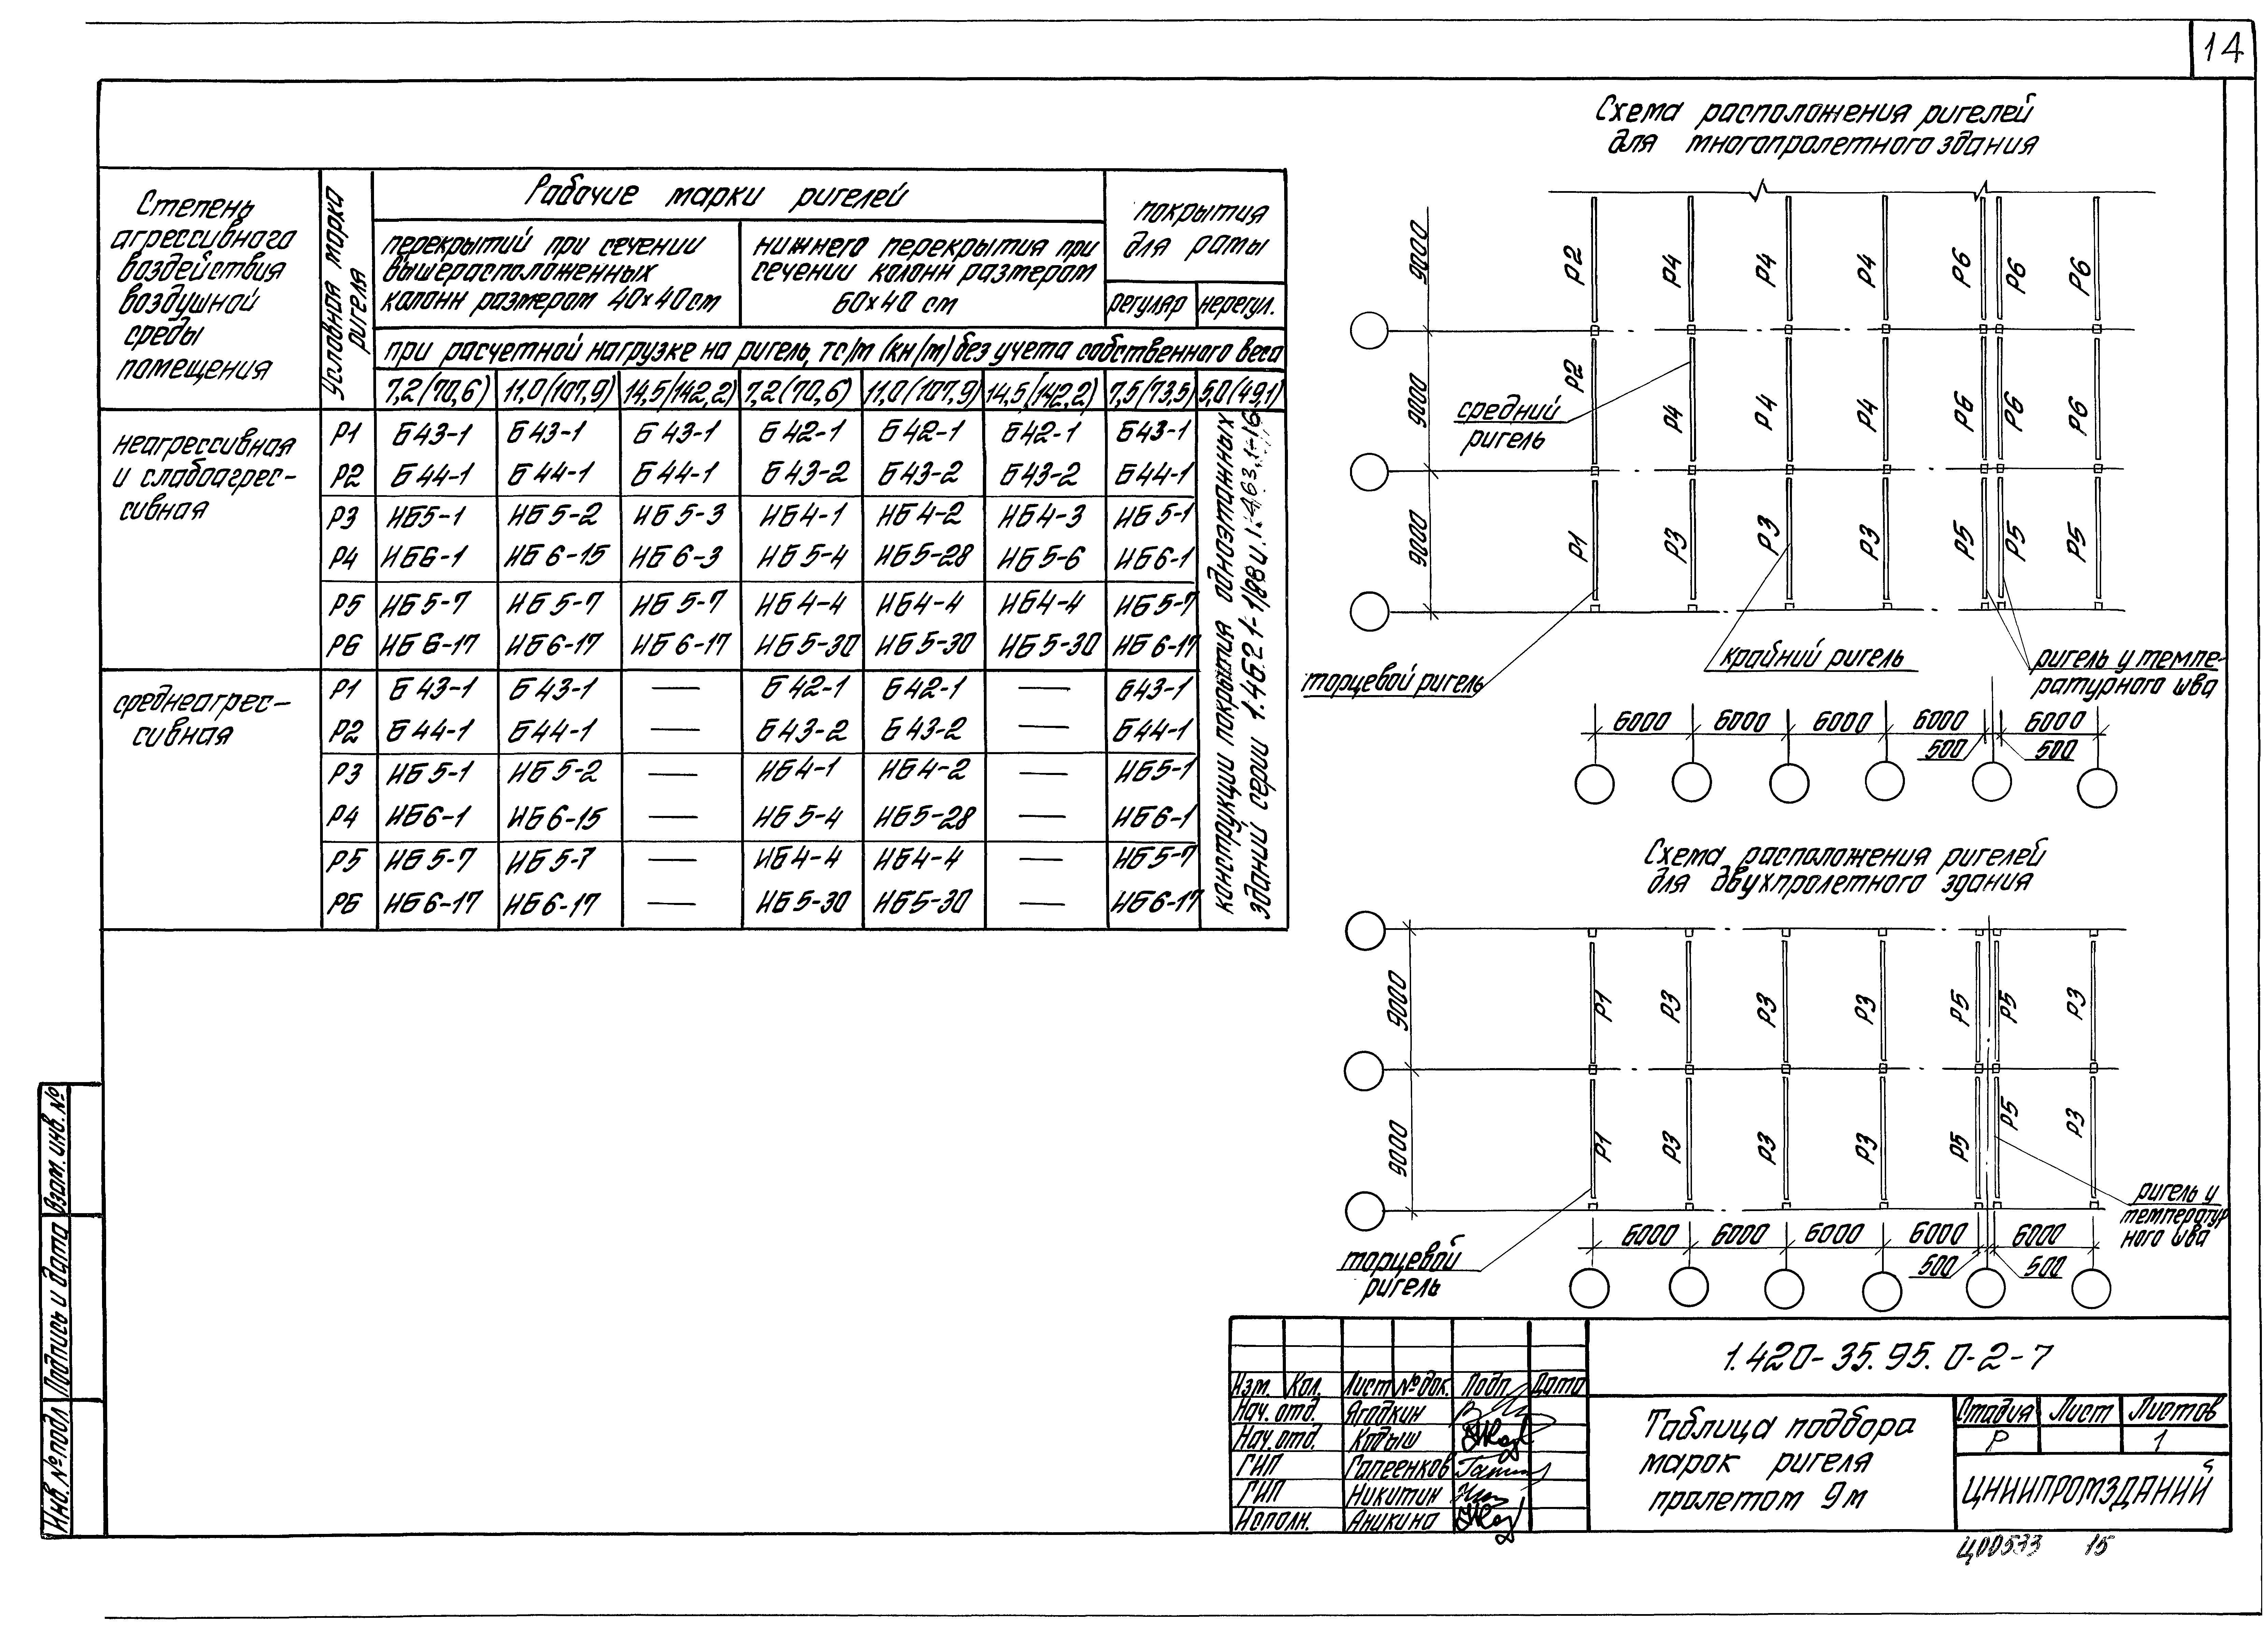 14
Степень
агрессивного
воздействия
воздушной
среды
помещения
Условная марка
ригеля
Рабочие марки ригелей
перекрытий при сечении
вышерасположенных
колонн размером 40×40см
нижнего перекрытия при
сечении колонн размером
60×40 см
покрытия
для рамы
регуляр нерегул.
при расчетной нагрузке на ригель, тс/м (кн/м) без учета собственного веса
7,2(70,6) 11,0(107,9) 14,5(142,2) 7,2(70,6) 11,0(107,9) 14,5(142,2) 7,5(73,5) 5,0(49,1)
неагрессивная
и слабоагрес-
сивная
Р1 Б43-1 Б43-1 Б43-1 Б42-1 Б42-1 Б42-1 Б43-1
Р2 Б44-1 Б44-1 Б44-1 Б43-2 Б43-2 Б43-2 Б44-1
Р3 ИБ5-1 ИБ5-2 ИБ5-3 ИБ4-1 ИБ4-2 ИБ4-3 ИБ5-1
Р4 ИБ6-1 ИБ6-15 ИБ6-3 ИБ5-4 ИБ5-28 ИБ5-6 ИБ6-1
Р5 ИБ5-7 ИБ5-7 ИБ5-7 ИБ4-4 ИБ4-4 ИБ4-4 ИБ5-7
Р6 ИБ6-17 ИБ6-17 ИБ6-17 ИБ5-30 ИБ5-30 ИБ5-30 ИБ6-17
среднеагрес-
сивная
Р1 Б43-1 Б43-1 — Б42-1 Б42-1 — Б43-1
Р2 Б44-1 Б44-1 — Б43-2 Б43-2 — Б44-1
Р3 ИБ5-1 ИБ5-2 — ИБ4-1 ИБ4-2 — ИБ5-1
Р4 ИБ6-1 ИБ6-15 — ИБ5-4 ИБ5-28 — ИБ6-1
Р5 ИБ5-7 ИБ5-7 — ИБ4-4 ИБ4-4 — ИБ5-7
Р6 ИБ6-17 ИБ6-17 — ИБ5-30 ИБ5-30 — ИБ6-17
конструкции покрытия одноэтажных
зданий серии 1.462.1-1/88 и 1.463.1-16
Схема расположения ригелей
для многопролетного здания
9000 Р2 Р4 Р4 Р4 Р6 Р6 Р6
9000 Р2 Р4 Р4 Р4 Р6 Р6 Р6
средний
ригель
9000 Р1 Р3 Р3 Р3 Р5 Р5 Р5
торцевой ригель
крайний ригель
ригель у темпе-
ратурного шва
6000 6000 6000 6000 6000
500 500
Схема расположения ригелей
для двухпролетного здания
9000 Р1 Р3 Р3 Р3 Р5 Р5 Р3
9000 Р1 Р3 Р3 Р3 Р5 Р5 Р3
ригель у
температур
ного шва
6000 6000 6000 6000 6000
500 500
торцевой
ригель
Взам. инв. №
Подпись и дата
Инв. № подл
Изм. Кол. Лист № док. Подп. Дата
Нач. отд. Ягодкин
Нач. отд. Кодыш
ГИП Гапеенков
ГИП Никитин
Исполн. Аникина
1.420-35.95.0-2-7
Таблица подбора
марок ригеля
пролетом 9м
Стадия Лист Листов
Р 1
ЦНИИПРОМЗДАНИЙ
Ц00533 15